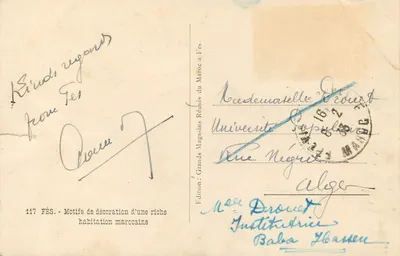 Kinds regards
from Fes
117 FÈS. - Motifs de décoration d'une riche
habitation marocaine
Edition : Grands Magasins Réunis du Maroc à Fès.
Mademoiselle Drouet
Université
Rue Négrier
Alger
16
8-2
35
MAROC
Mlle Drouet
Institutrice
Baba Hassen